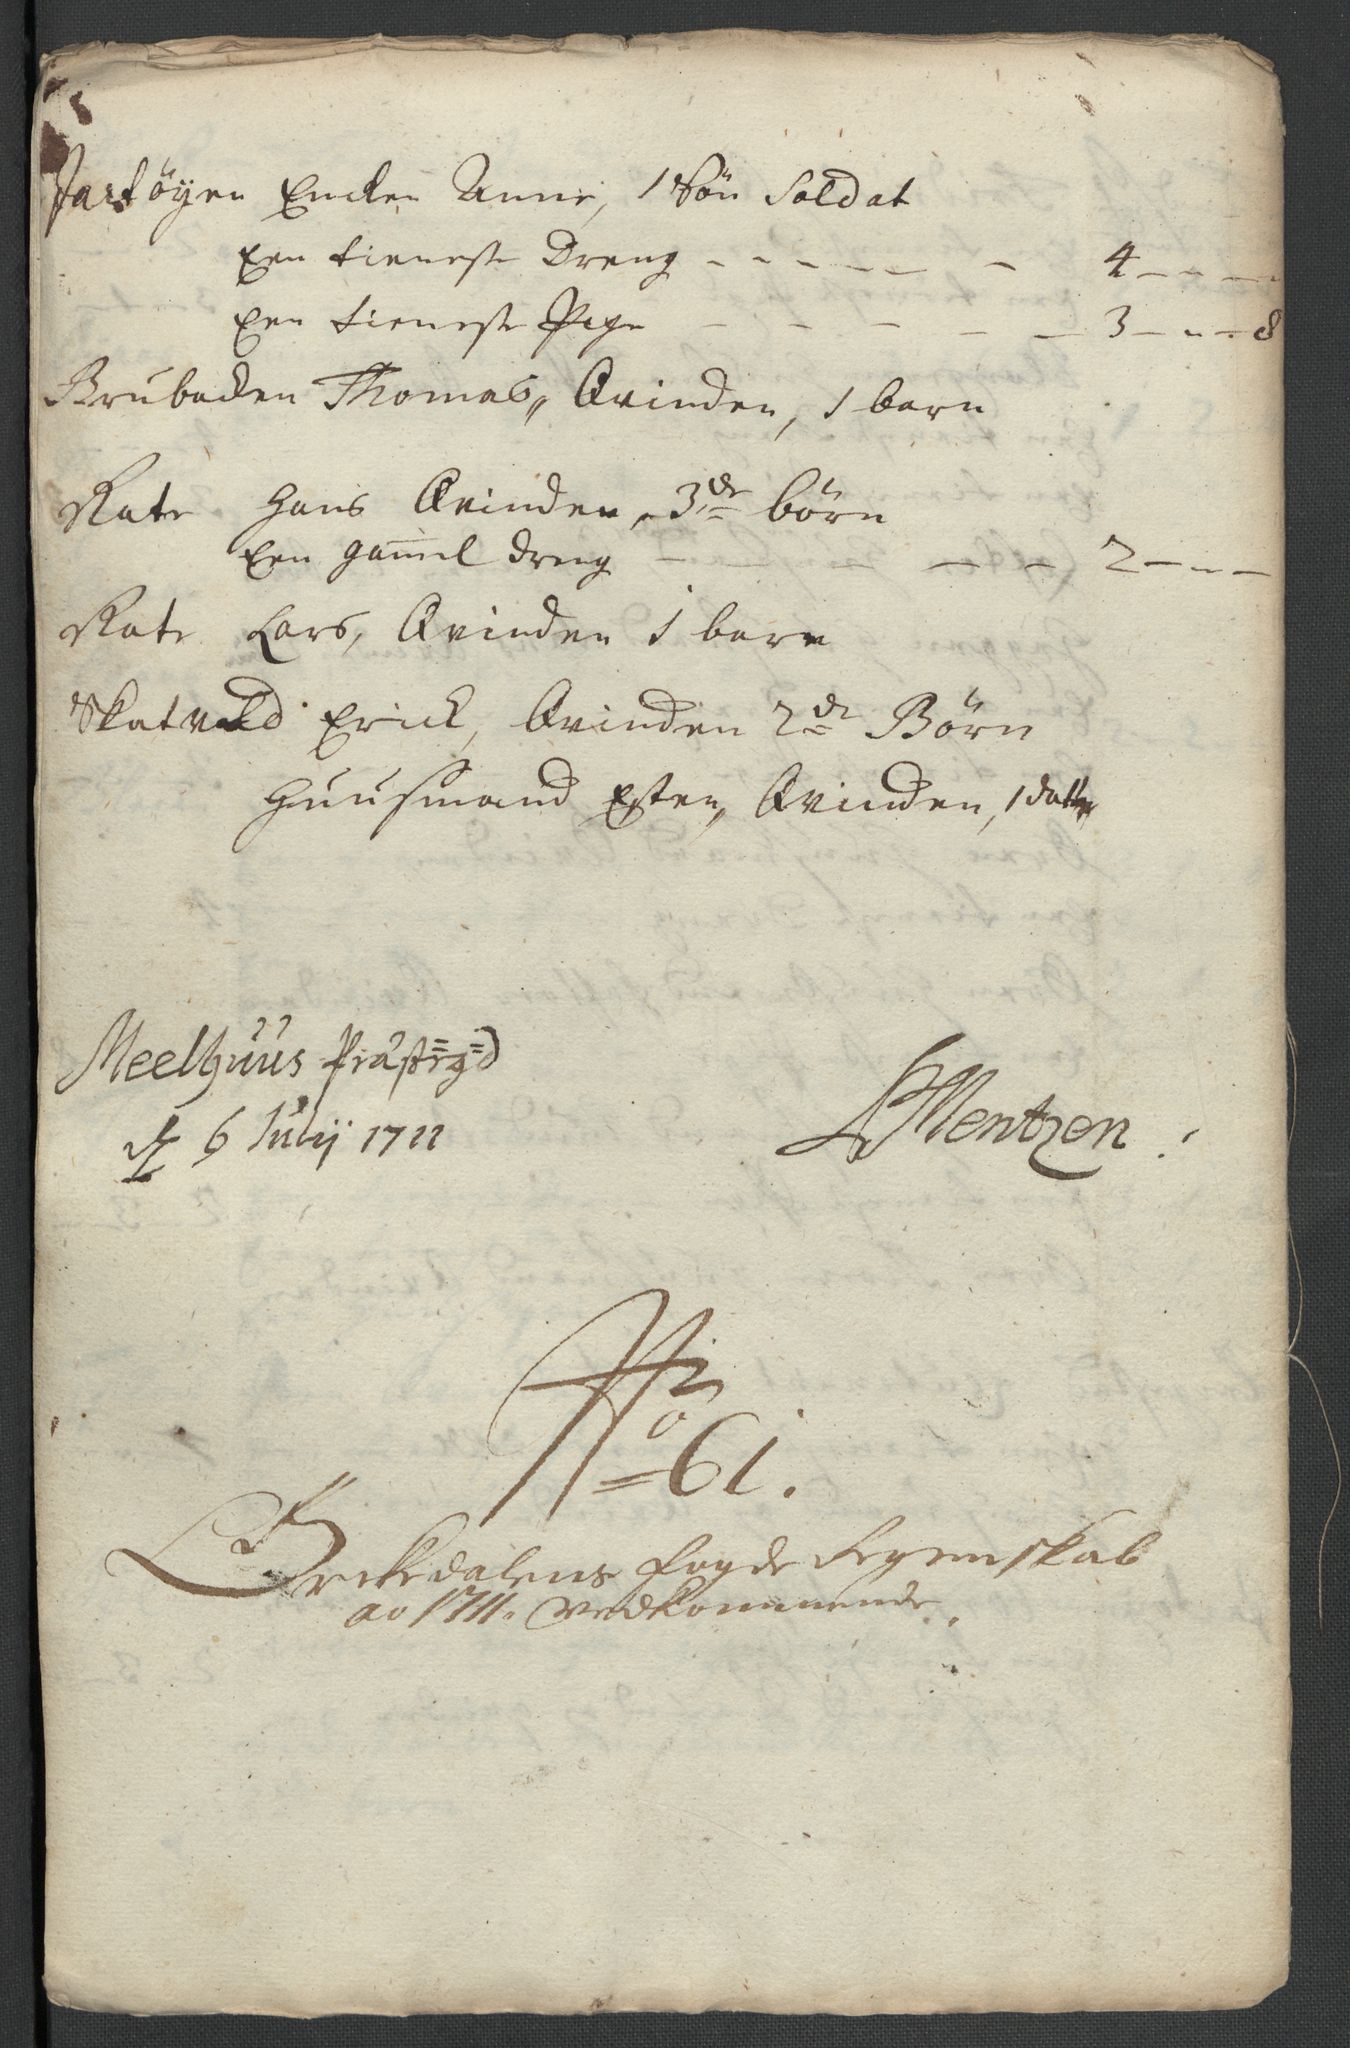 Jarsøyen Encken Anne, 1 Søn Soldat
Een tieneste Dreng - - - - - - 4 - - -
Een tieneste Pige - - - - - - 3 - - - 8
Brubacken Thomas, Qvinden, 1 barn
Rate Hans Qvinden, 3de børn
Een gamel dreng - - - - - 2 - - -
Rate Lars, Qvinden 1 barn
Skatvold Erick, Qvinden 2de Børn
Huusmand Esten, Qvinden, 1 datter
Meelhuus Præsteg=d
d 6 Julij 1711
LMentzen
No 61.
Orckedalens Fogde Regenskab
ao 1711. vedkommende.